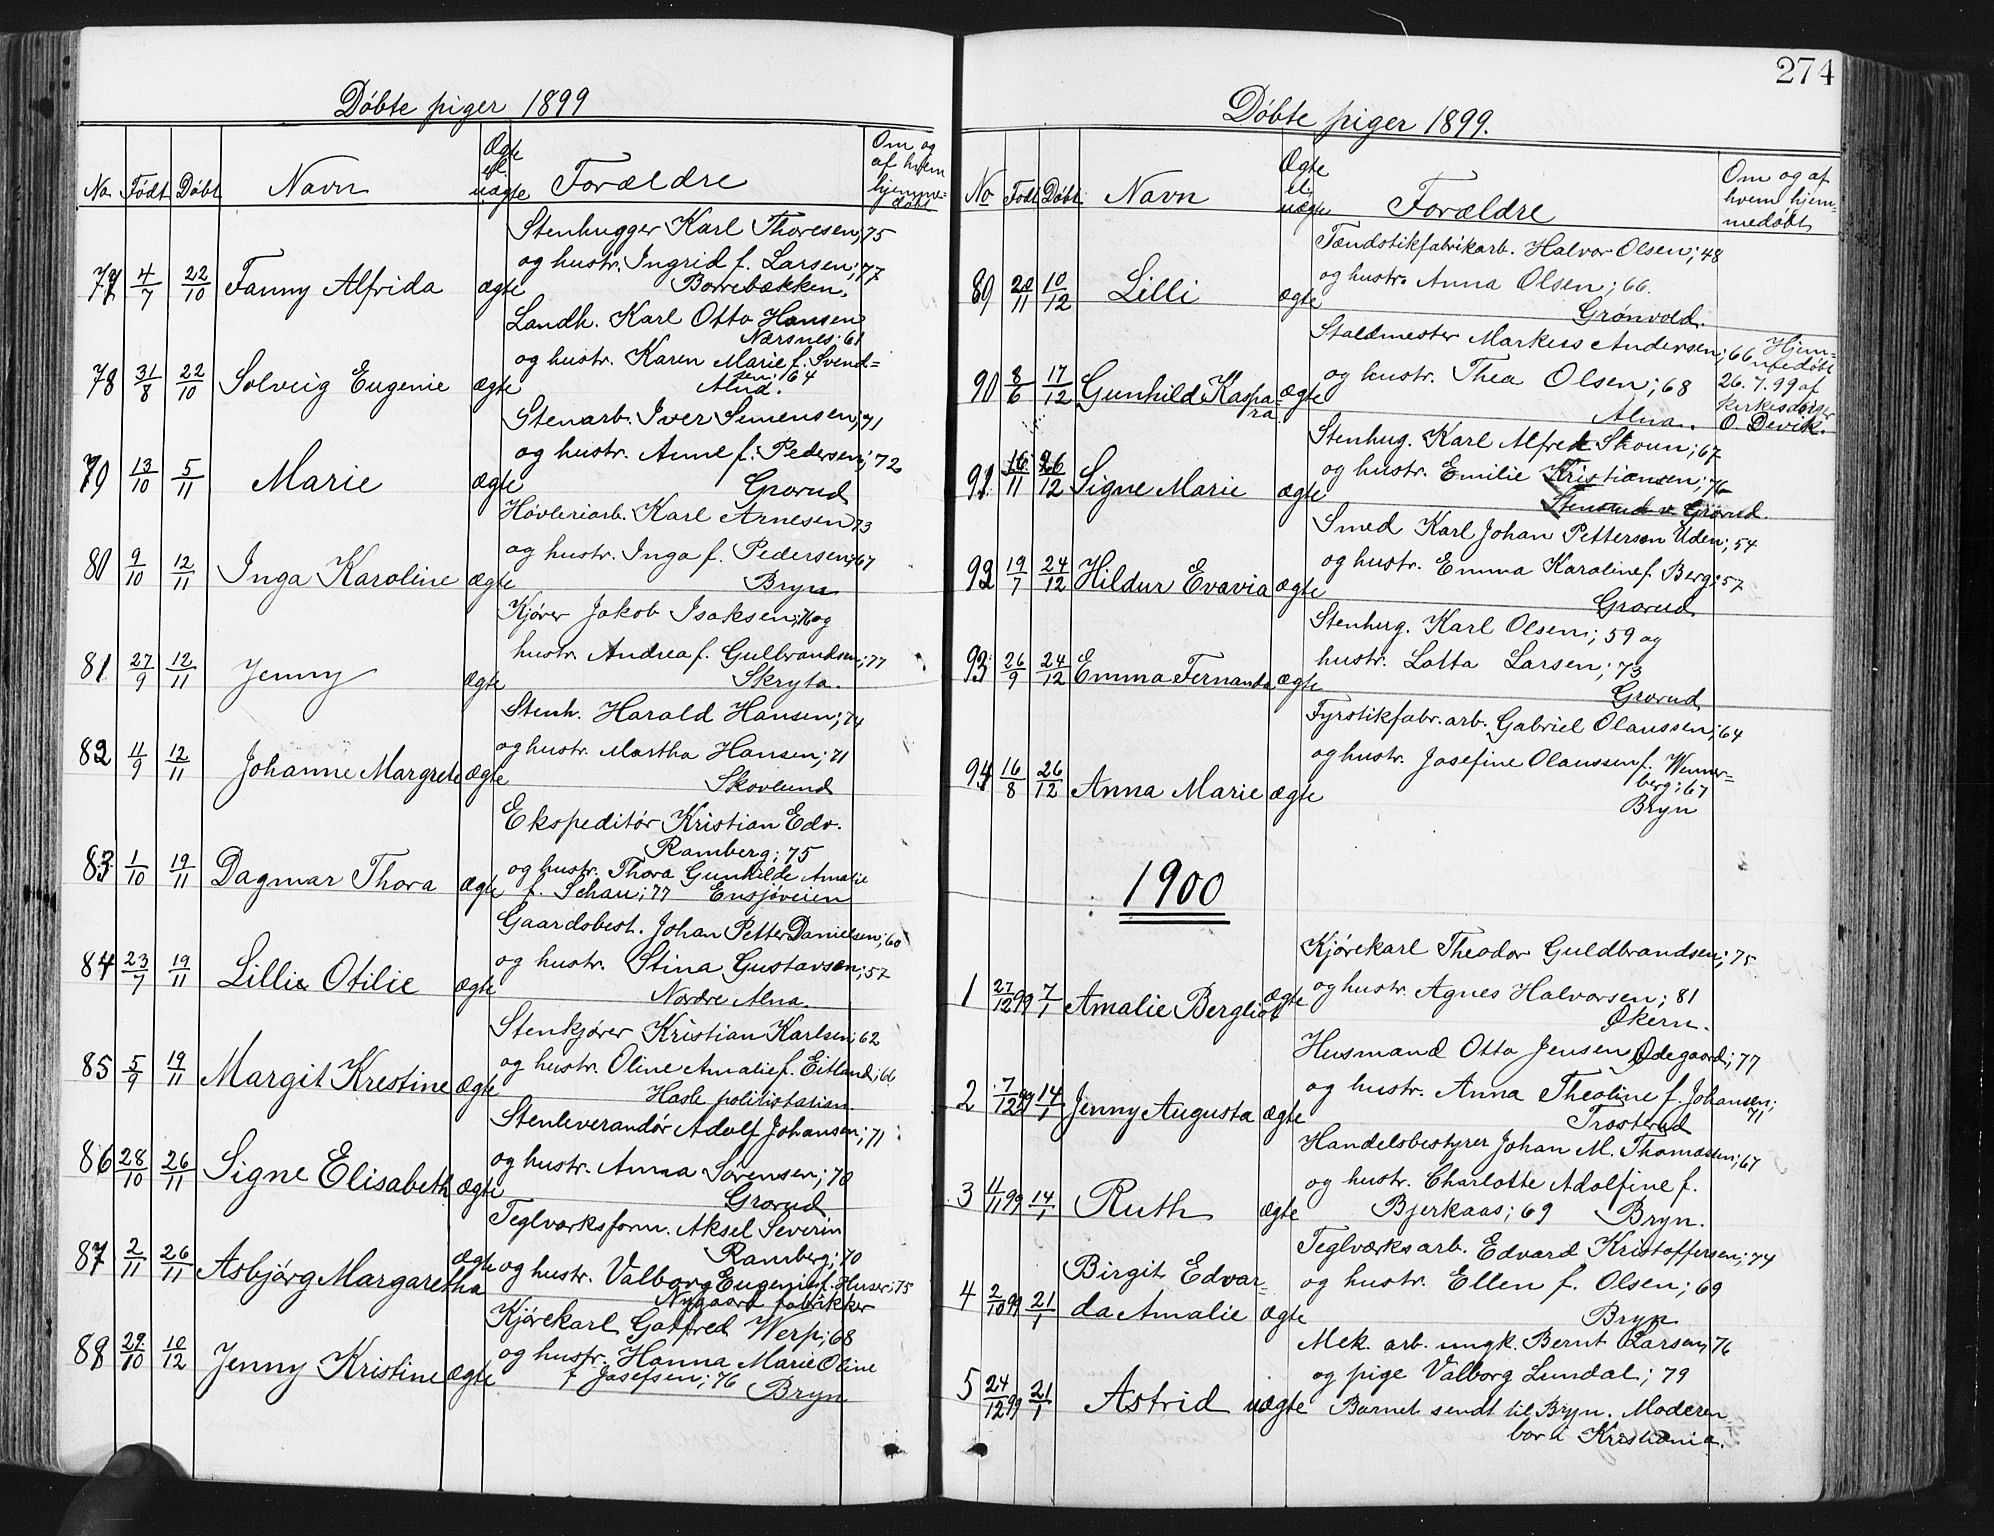 Døbte piger 1899
No. Født Døbt Navn Ægte el. uægte Forældre Om og af hvem hjemmedøbt
77 4/7 22/10 Fanny Alfrida ægte Stenhugger Karl Thoresen; 75
og hustr. Ingrid f. Larsen; 77
Borrebækken.
78 31/8 22/10 Solveig Eugenie ægte Landh. Karl Otto Hansen
Nærsnes; 61
og hustr. Karen Marie f. Svend-
sen; 64
Alnd.
79 13/10 5/11 Marie ægte Stenarb. Iver Simensen; 71
og hustr. Anne f. Pedersen; 72
Grorud
80 9/10 12/11 Inga Karoline ægte Høvleriarb. Karl Arnesen 73
og hustr. Inga f. Pedersen; 67
Bryn
81 27/9 12/11 Jenny ægte Kjører Jakob Isaksen; 76 og
hustr. Andrea f. Gulbrandsen; 77
Skryta.
82 11/9 12/11 Johanne Margrete ægte Stenh. Harald Hansen; 74
og hustr. Martha Hansen; 71
Skovlund
83 1/10 19/11 Dagmar Thora ægte Ekspeditør Kristian Edv.
Ramberg; 75
og hustr. Thora Gunhilde Amalie
f. Schau; 77 Ensjøveien
84 23/7 19/11 Lillie Otilie ægte Gaardsbest. Johan Petter Danielsen; 60
og hustr. Stina Gustavsen; 57
Nordre Alna.
85 5/9 19/11 Margit Krestine ægte Stenkjører Kristian Karlsen; 62
og hustr. Oline Amalie f. Eitland; 66
Hasle politistation.
86 28/10 26/11 Signe Elisabeth ægte Stenleverandør Adolf Johansen; 71
og hustr. Anna Sørensen; 70
Grorud
87 2/11 26/11 Asbjørg Margaretha ægte Teglværksform. Aksel Severin
Ramberg; 70
og hustr. Valborg Eugenie f. Huser; 75
Nygaard fabrikker
88 29/10 10/12 Jenny Kristine ægte Kjørekarl Gotfred Werp; 68
og hustr. Hanna Marie Oline
f. Josefsen; 76 Bryn
274
Døbte piger 1899.
No Født Døbt Navn Ægte el. uægte Forældre Om og af hvem hjemmedøbt
89 20/11 10/12 Lilli ægte Tændstikfabrikarb. Halvor Olsen; 48
og hustr. Anna Olsen; 66.
Grønvold.
90 8/6 17/12 Gunhild Kaspara ægte Staldmester Markus Andersen; 66
og hustr. Thea Olsen; 68
Alna.
Hjem-
medøbt
26.7.99 af
kirkesanger
O. Devik.
91 16/11 26/12 Signe Marie ægte Stenhug. Karl Alfred Skoun; 67
og hustr. Emilie Kristiansen; 76
Stensrud v. Grorud.
92 19/7 24/12 Hildur Evavia ægte Smed Karl Johan Petterson Uden; 54
og hustr. Emma Karoline f. Berg; 57
Grorud
93 26/9 24/12 Emma Fernanda ægte Stenhug. Karl Olsen; 59 og
hustr. Lotta Larsen; 73
Grorud
94 16/8 26/12 Anna Marie ægte Fyrstikfabr. arb. Gabriel Olaussen; 64
og hustr. Josefine Olaussen f. Wenner-
berg; 67
Bryn
1900
1 27/12 99 7/1 Amalie Bergliot ægte Kjørekarl Theodor Guldbrandsen; 75
og hustr. Agnes Halvorsen; 81
Økern.
2 7/12 99 14/1 Jenny Augusta ægte Husmand Otto Jensen Ødegaard; 77
og hustr. Anna Theoline f. Johansen;
71
Trosterud
3 11/11 99 14/1 Ruth ægte Handelsbestyrer Johan M. Thomassen; 67
og hustr. Charlotte Adolfine f.
Bjerkaas; 69 Bryn.
4 2/10 99 21/1 Birgit Edvar-
da Amalie ægte Teglværksarb. Edvard Kristoffersen; 74
og hustr. Ellen f. Olsen; 69
Bryn
5 24/12 99 21/1 Astrid uægte Mek. arb. ungk. Bernt Larsen; 76
og pige Valborg Lundal; 79
Barnet sendt til Bryn. Moderen
bor i Kristiania.